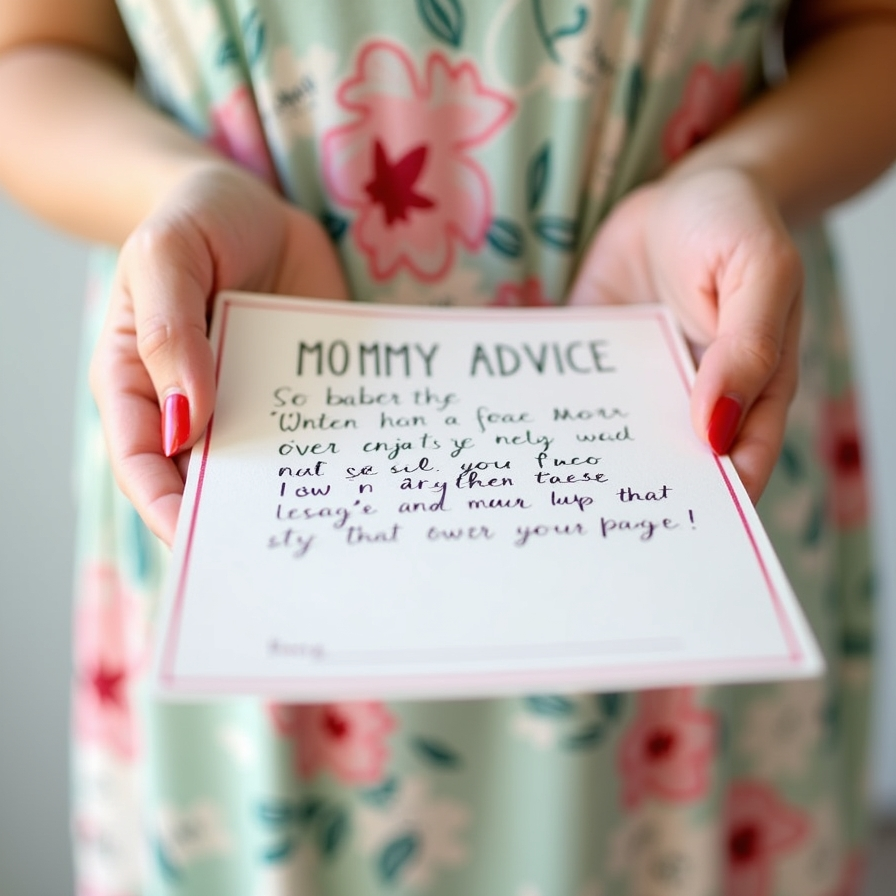 MOMMY ADVICE
So baber the
"Wnten han a foae Morr
over enjats ye nely wad
nut se sil. you fuco
low n arythen taese
lesag'e and muur lup that
sty that ower your page!